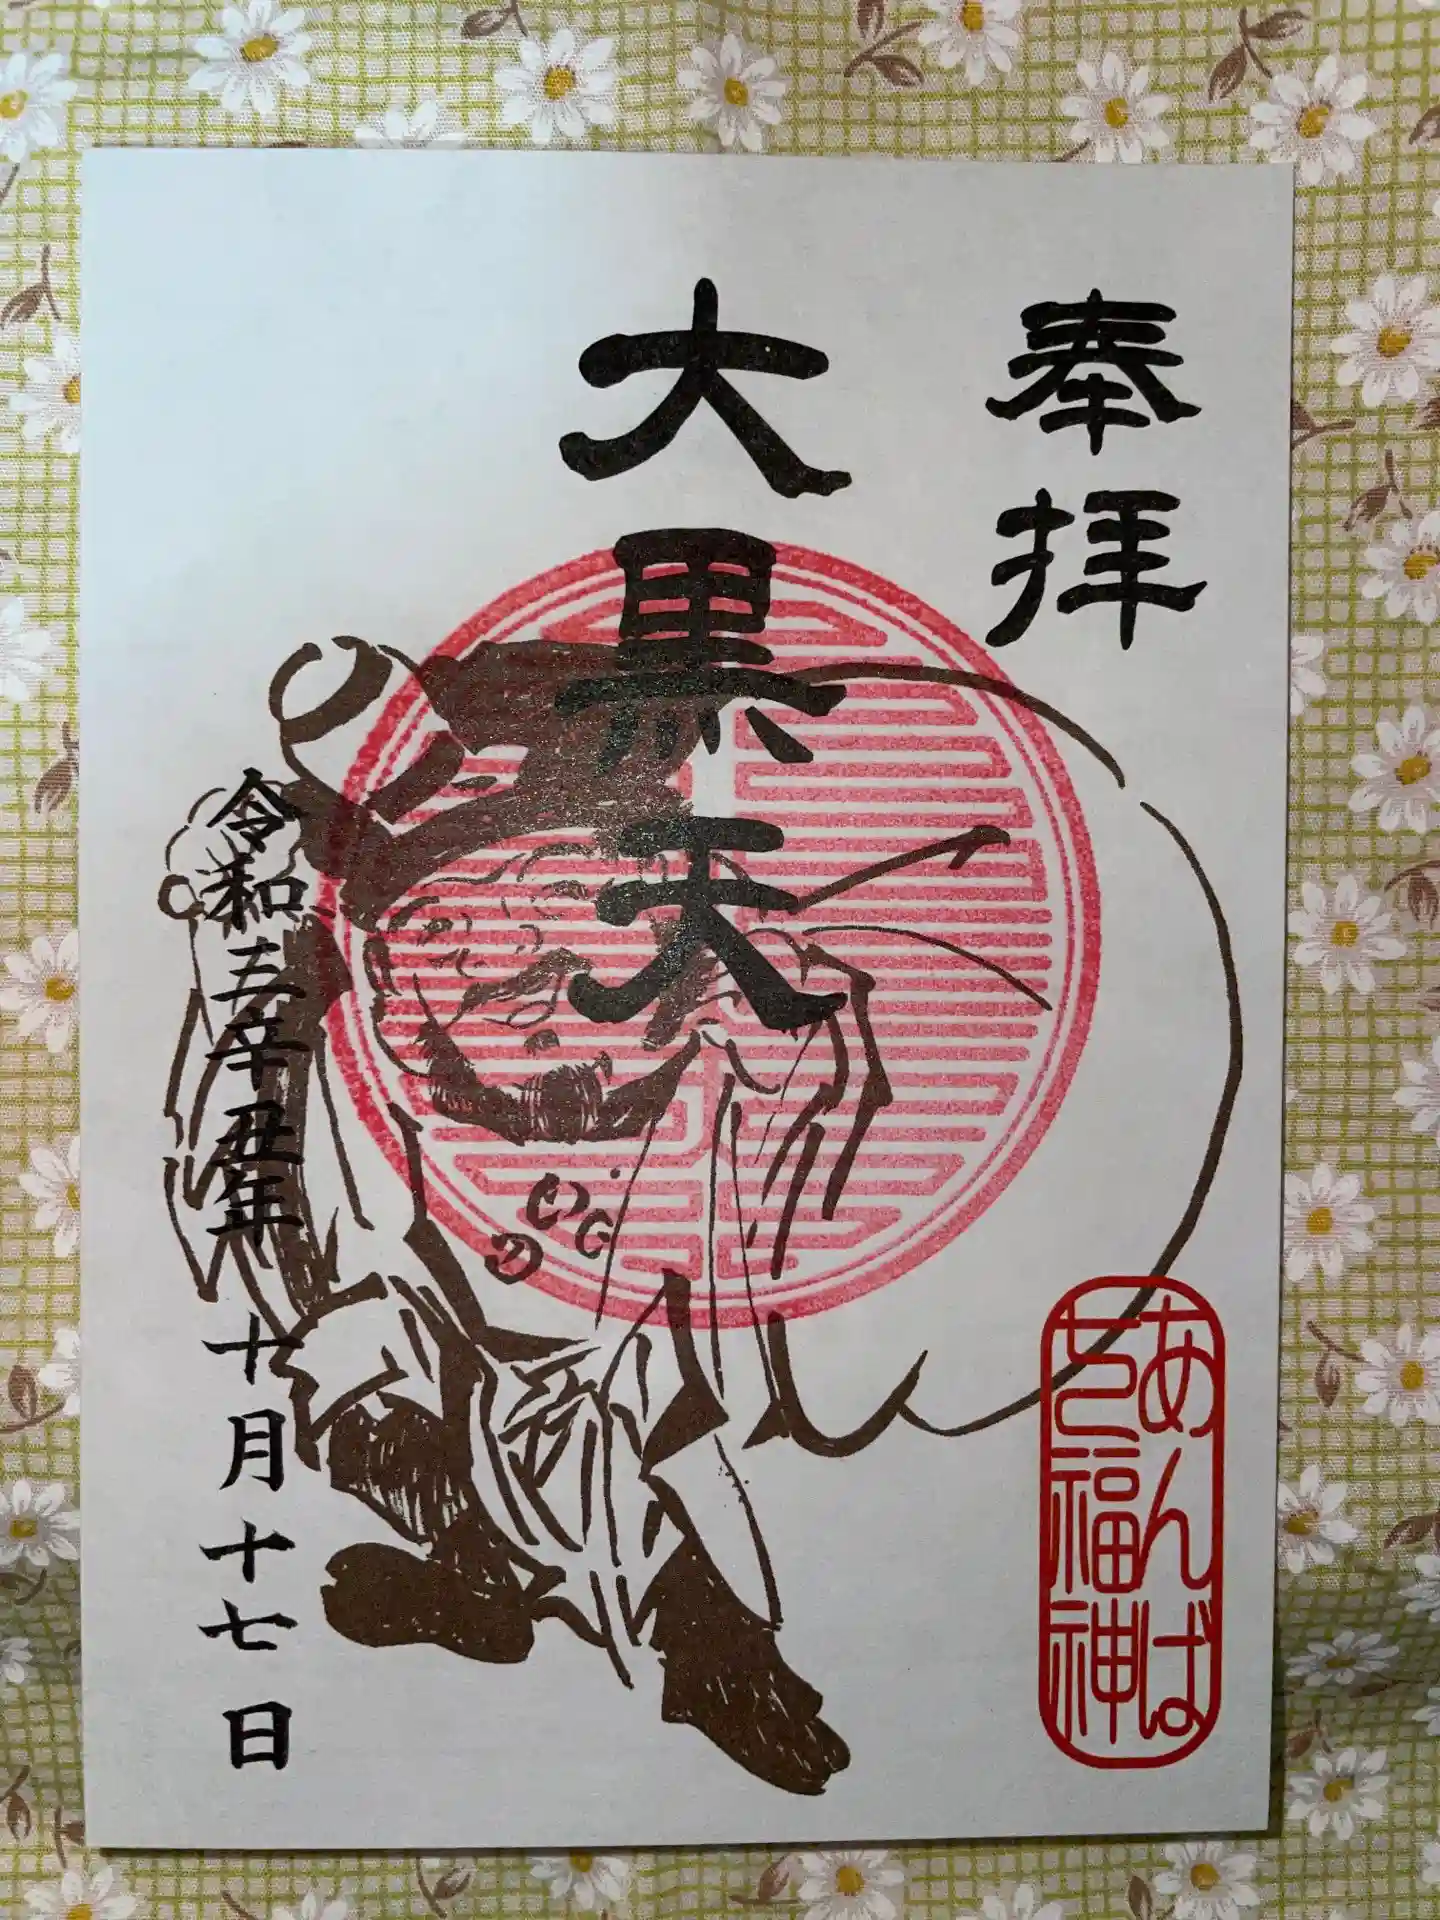 奉拝
大黒天
あんば
七福神
令和三辛丑年十月十七日